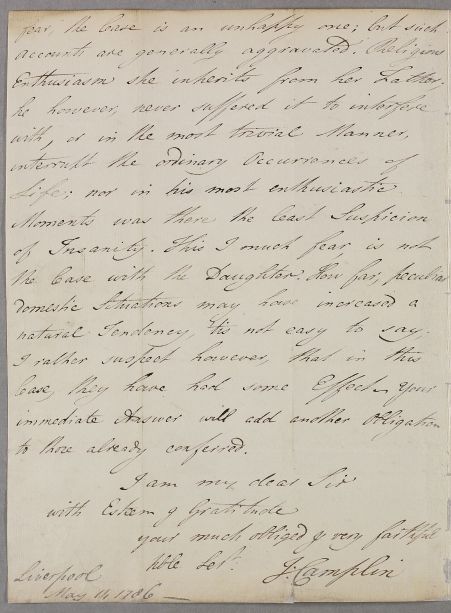 fear, the Case is an unhappy one; but such
accounts are generally aggravated. Religious
Enthusiasm she inherits from her Father.
he however, never suffered it to interfere
with, or in the most trivial Manner,
interrupt the ordinary Occurrences of
Life; nor in his most enthusiastic
Moments was there the least Suspicion
of Insanity. This I much fear is not
the Case with the Daughter. How far, peculiar
domestic Situations may have increased a
natural Tendency, 'tis not easy to say.
I rather suspect however, that in this
Case, they have had some Effect. Your
immediate Answer will add another Obligation
to those already conferred.
I am my dear Sir
with Esteem & Gratitude
your much obliged & very faithful
hble Sert.
J: Camplin
Liverpool
May 14 1786